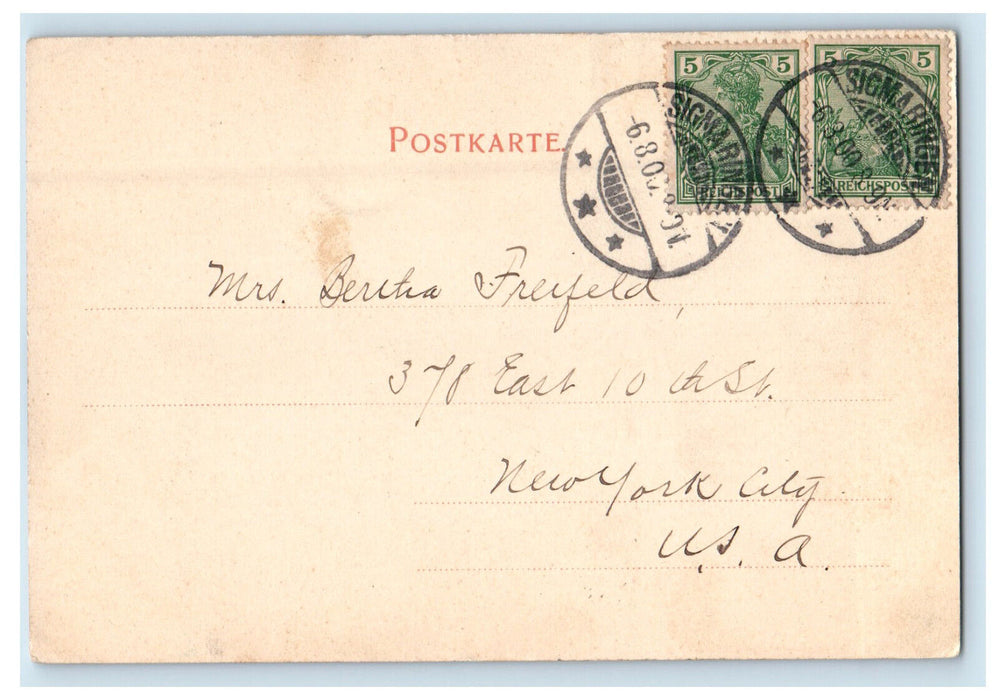 5 5 5 5
POSTKARTE.
SIGMARINGEN
-6.8.00.
SIGMARINGEN
-6.8.00.
REICHSPOST
REICHSPOST
Mrs. Bertha Freifeld,
378 East 10th St.
New York City
U.S.A.